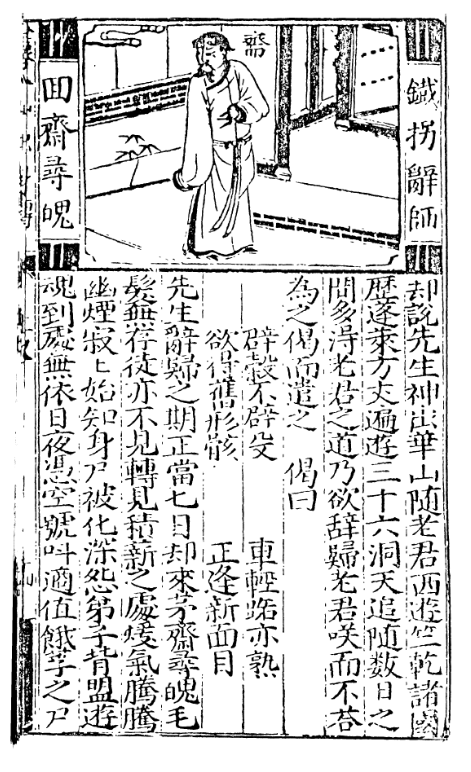 鐵拐辭師
回齋尋魄
齋
却說先生神出華山随老君西遊竺乾諸國
歷蓬萊方丈遍遊三十六洞天追随数日之
間多淂老君之道乃欲辞歸老君咲而不荅
為之偈而遣之　偈曰
辟穀不辟麥　車輕路亦熟
欲得舊形骸　正逢新面目
先生辭歸之期正當七日却來茅齋尋魄毛
髮無存徒亦不見轉見積薪之處煖氣騰騰
幽煙寂上始知身尸被化深怨弟子背盟遊
魂到處無依日夜憑空號呌適值餓莩之尸